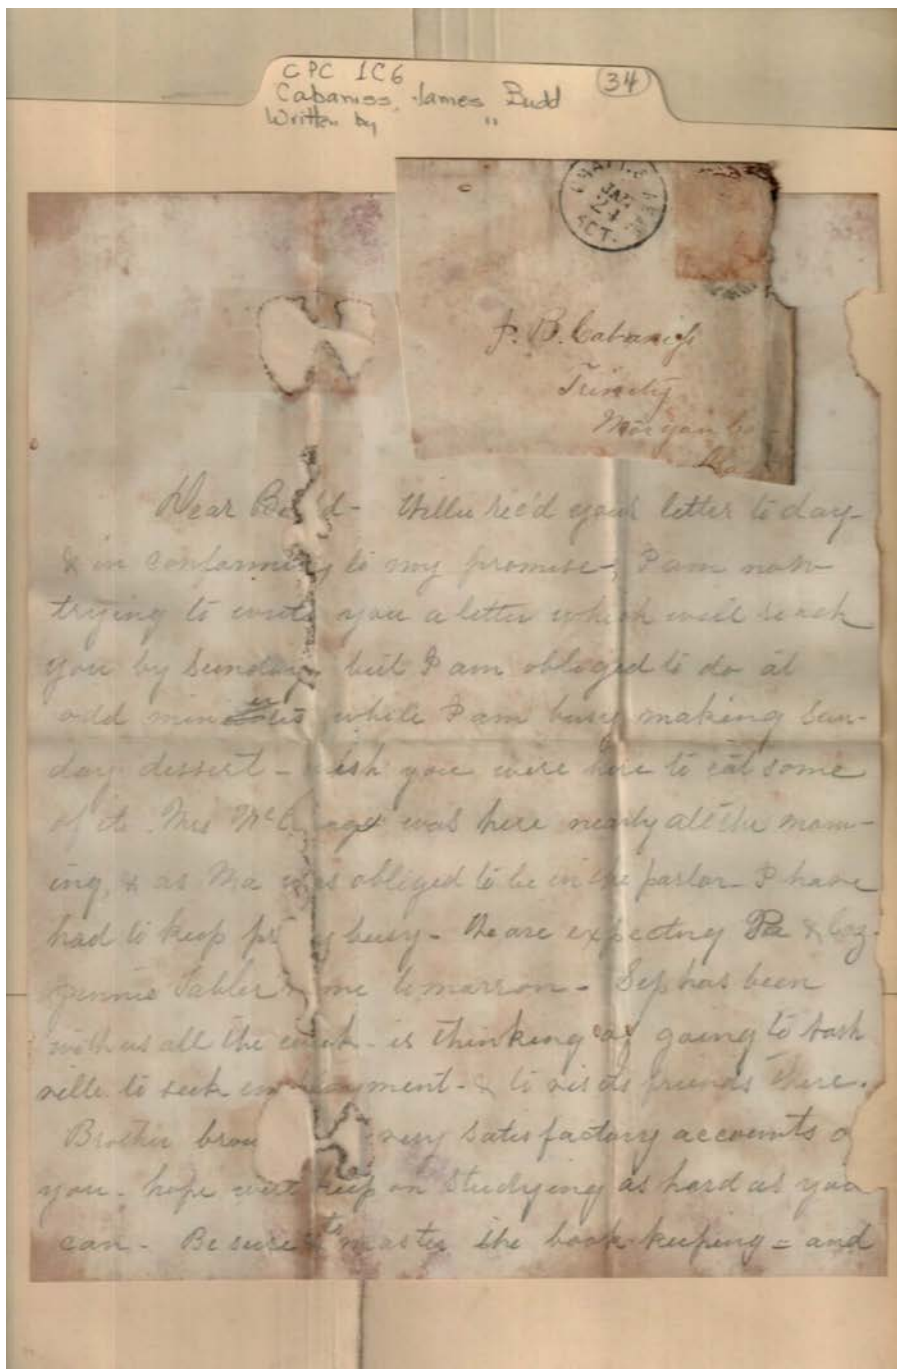 CPC 1C6
Cabaniss, James Budd
Written by "
34
JAN
24
J. B. Cabaniss
Trinity
Morgan Co-
Dear Bu d- Willie rec'd your letter to day-
& in conformity to my promise-, I am now
trying to write you a letter which will reach
you by Sunday, but I am obliged to do at
odd minutes while I am busy making Sun-
day dessert - wish you were here to eat some
of it. Mrs was here nearly all the morn-
ing, & as Ma was obliged to be in the parlor I have
had to keep pr y busy- We are expecting Pa &
Jennie Tabler home tomorrow - Sep has been
with us all the week - is thinking of going to Nash
ville to seek employment - & to visit friends there.
Brother brou very satisfactory accounts o
you - hope will keep on studying as hard as you
can - Be sure to master the book-keeping = and